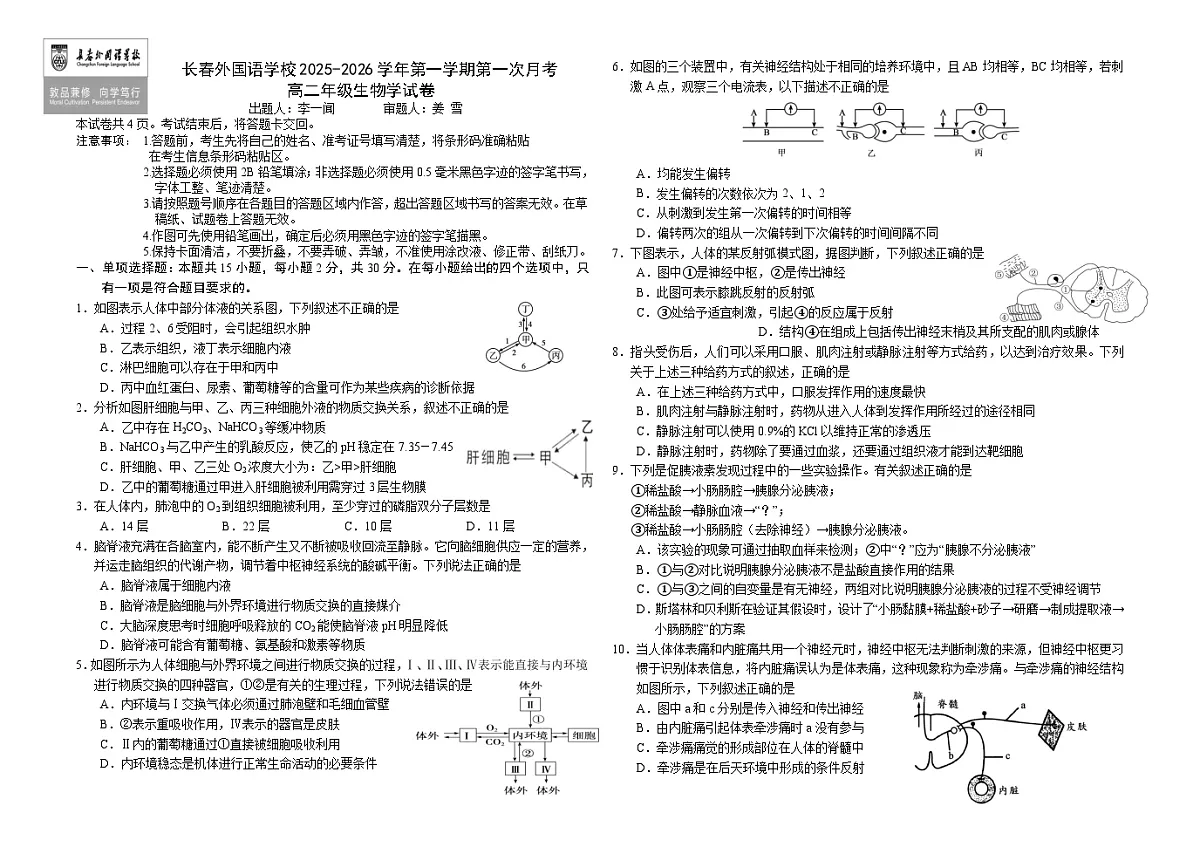 长春外国语学校
Changchun Foreign Language School
敦品兼修 向学笃行
Moral Cultivation Persistent Endeavor
长春外国语学校 2025-2026 学年第一学期第一次月考
高二年级生物学试卷
出题人：李一闻 审题人：姜 雪
本试卷共 4 页。考试结束后，将答题卡交回。
注意事项： 1.答题前，考生先将自己的姓名、准考证号填写清楚，将条形码准确粘贴
在考生信息条形码粘贴区。
2.选择题必须使用 2B 铅笔填涂；非选择题必须使用 0.5 毫米黑色字迹的签字笔书写，
字体工整、笔迹清楚。
3.请按照题号顺序在各题目的答题区域内作答，超出答题区域书写的答案无效。在草
稿纸、试题卷上答题无效。
4.作图可先使用铅笔画出，确定后必须用黑色字迹的签字笔描黑。
5.保持卡面清洁，不要折叠，不要弄破、弄皱，不准使用涂改液、修正带、刮纸刀。
一、单项选择题：本题共 15 小题，每小题 2 分，共 30 分。在每小题给出的四个选项中，只
有一项是符合题目要求的。
1．如图表示人体中部分体液的关系图，下列叙述不正确的是
A．过程 2、6 受阻时，会引起组织水肿
B．乙表示组织，液丁表示细胞内液
C．淋巴细胞可以存在于甲和丙中
D．丙中血红蛋白、尿素、葡萄糖等的含量可作为某些疾病的诊断依据
丁
3 4
甲
1 2 5
乙 丙
6
2．分析如图肝细胞与甲、乙、丙三种细胞外液的物质交换关系，叙述不正确的是
A．乙中存在 H₂CO₃、NaHCO₃ 等缓冲物质
B．NaHCO₃ 与乙中产生的乳酸反应，使乙的 pH 稳定在 7.35－7.45
C．肝细胞、甲、乙三处 O₂ 浓度大小为：乙>甲>肝细胞
D．乙中的葡萄糖通过甲进入肝细胞被利用需穿过 3 层生物膜
乙
肝细胞 甲
丙
3．在人体内，肺泡中的 O₂ 到组织细胞被利用，至少穿过的磷脂双分子层数是
A．14 层 B．22 层 C．10 层 D．11 层
4．脑脊液充满在各脑室内，能不断产生又不断被吸收回流至静脉。它向脑细胞供应一定的营养，
并运走脑组织的代谢产物，调节着中枢神经系统的酸碱平衡。下列说法正确的是
A．脑脊液属于细胞内液
B．脑脊液是脑细胞与外界环境进行物质交换的直接媒介
C．大脑深度思考时细胞呼吸释放的 CO₂ 能使脑脊液 pH 明显降低
D．脑脊液可能含有葡萄糖、氨基酸和激素等物质
5．如图所示为人体细胞与外界环境之间进行物质交换的过程，Ⅰ、Ⅱ、Ⅲ、Ⅳ表示能直接与内环境
进行物质交换的四种器官，①②是有关的生理过程，下列说法错误的是
A．内环境与Ⅰ交换气体必须通过肺泡壁和毛细血管壁
B．②表示重吸收作用，Ⅳ表示的器官是皮肤
C．Ⅱ内的葡萄糖通过①直接被细胞吸收利用
D．内环境稳态是机体进行正常生命活动的必要条件
体外
Ⅱ
①
体外 Ⅰ O₂ CO₂ 内环境 细胞
②
Ⅲ Ⅳ
体外 体外
6．如图的三个装置中，有关神经结构处于相同的培养环境中，且 AB 均相等，BC 均相等，若刺
激 A 点，观察三个电流表，以下描述不正确的是
A B C A B C A B C
甲 乙 丙
A．均能发生偏转
B．发生偏转的次数依次为 2、1、2
C．从刺激到发生第一次偏转的时间相等
D．偏转两次的组从一次偏转到下次偏转的时间间隔不同
7．下图表示，人体的某反射弧模式图，据图判断，下列叙述正确的是
A．图中①是神经中枢，②是传出神经
B．此图可表示膝跳反射的反射弧
C．③处给予适宜刺激，引起④的反应属于反射
D．结构④在组成上包括传出神经末梢及其所支配的肌肉或腺体
⑤ ② ① ③ ④
8．指头受伤后，人们可以采用口服、肌肉注射或静脉注射等方式给药，以达到治疗效果。下列
关于上述三种给药方式的叙述，正确的是
A．在上述三种给药方式中，口服发挥作用的速度最快
B．肌肉注射与静脉注射时，药物从进入人体到发挥作用所经过的途径相同
C．静脉注射可以使用 0.9%的 KCl 以维持正常的渗透压
D．静脉注射时，药物除了要通过血浆，还要通过组织液才能到达靶细胞
9．下列是促胰液素发现过程中的一些实验操作。有关叙述正确的是
①稀盐酸→小肠肠腔→胰腺分泌胰液；
②稀盐酸→静脉血液→“？”；
③稀盐酸→小肠肠腔（去除神经）→胰腺分泌胰液。
A．该实验的现象可通过抽取血样来检测；②中“？”应为“胰腺不分泌胰液”
B．①与②对比说明胰腺分泌胰液不是盐酸直接作用的结果
C．①与③之间的自变量是有无神经，两组对比说明胰腺分泌胰液的过程不受神经调节
D．斯塔林和贝利斯在验证其假设时，设计了“小肠黏膜+稀盐酸+砂子→研磨→制成提取液→
小肠肠腔”的方案
10．当人体体表痛和内脏痛共用一个神经元时，神经中枢无法判断刺激的来源，但神经中枢更习
惯于识别体表信息，将内脏痛误认为是体表痛，这种现象称为牵涉痛。与牵涉痛的神经结构
如图所示，下列叙述正确的是
A．图中 a 和 c 分别是传入神经和传出神经
B．由内脏痛引起体表牵涉痛时 a 没有参与
C．牵涉痛痛觉的形成部位在人体的脊髓中
D．牵涉痛是在后天环境中形成的条件反射
脑 脊髓 a
皮肤
b c
内脏